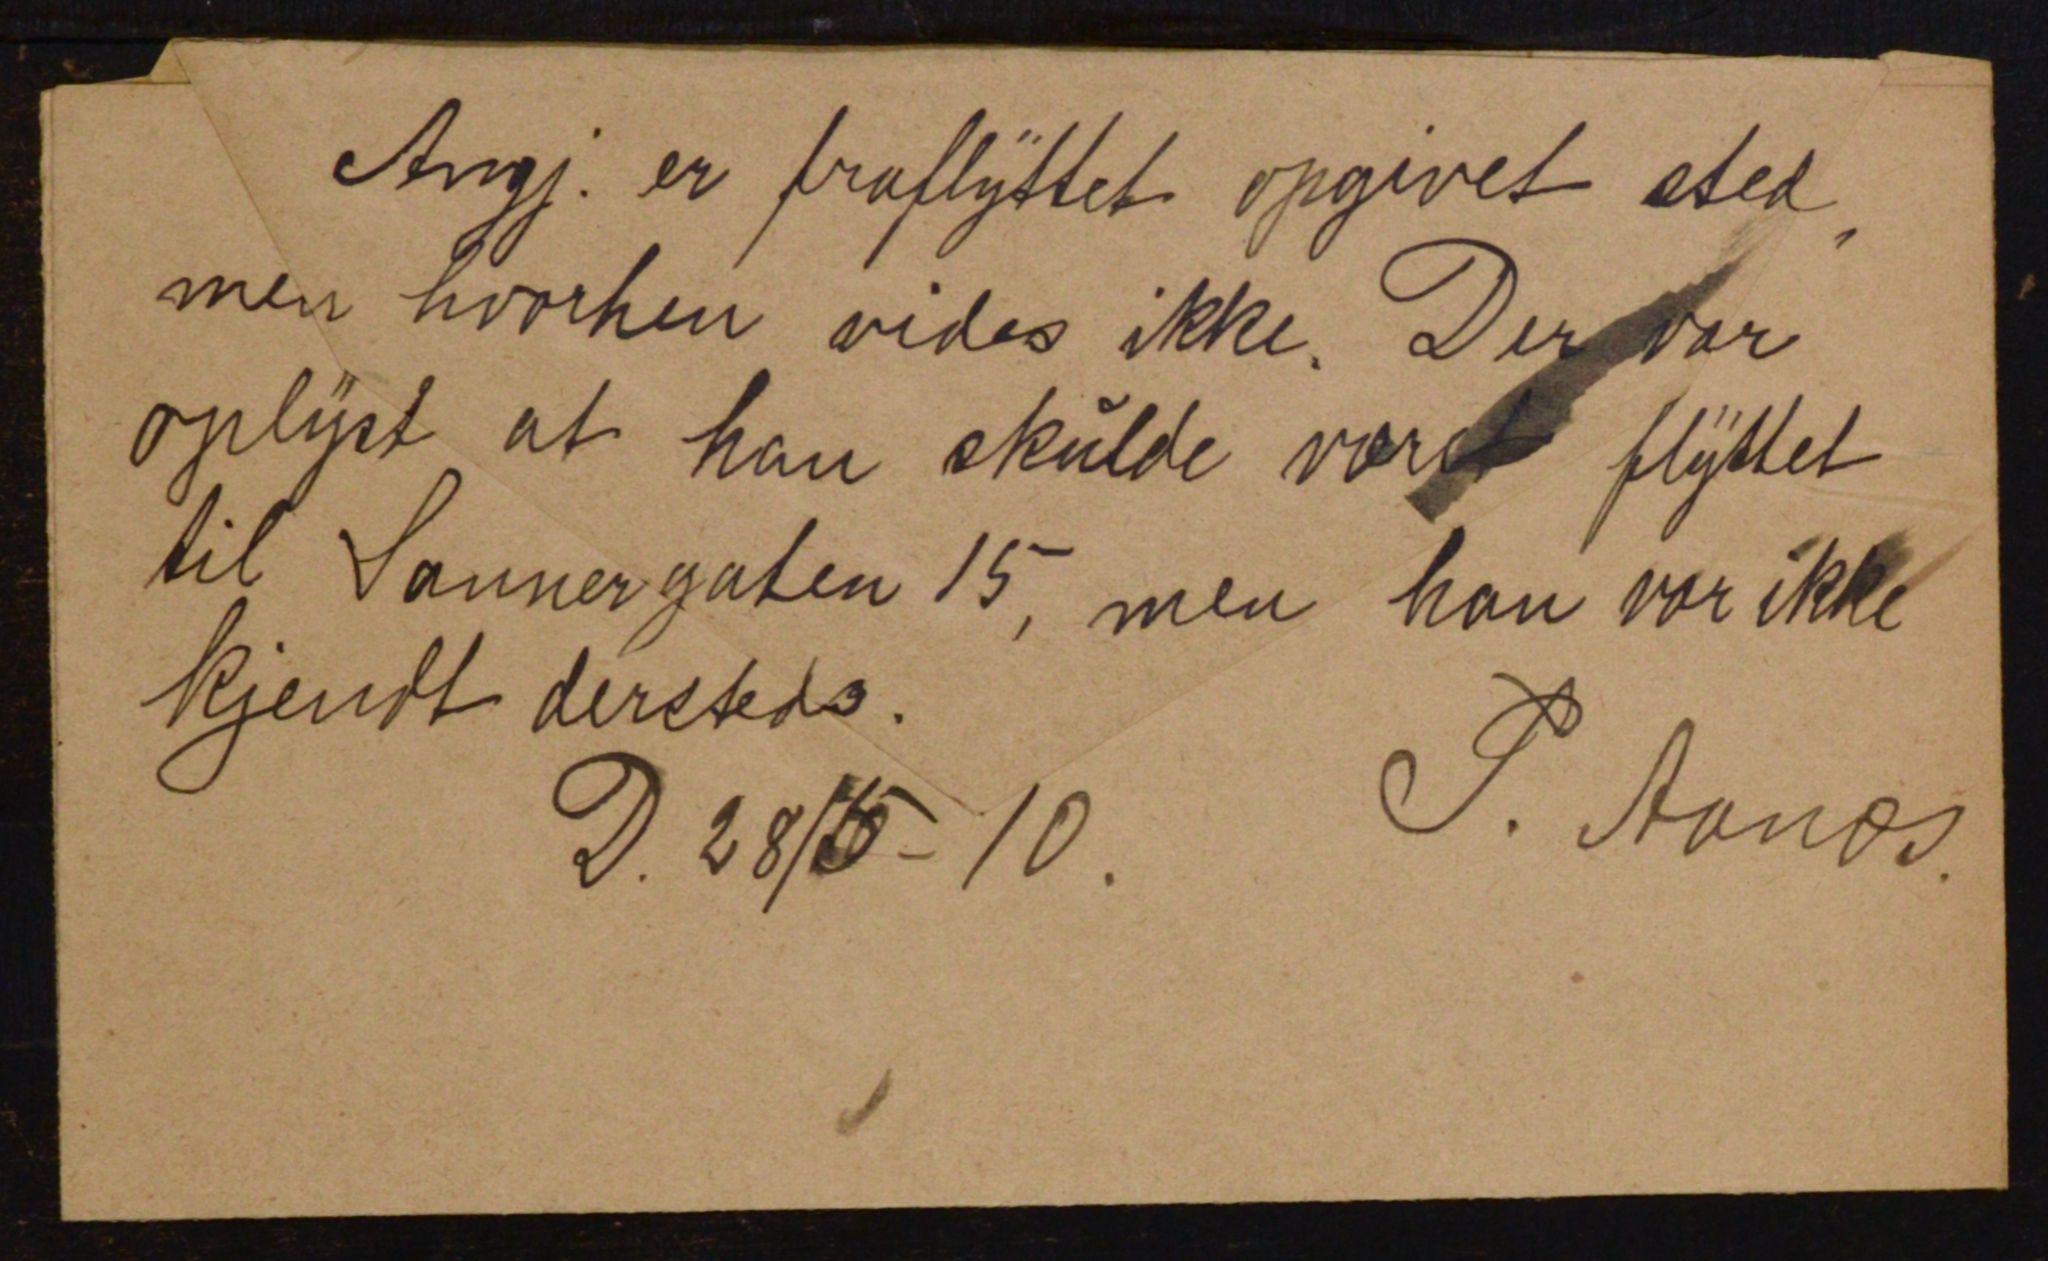 Angj. er fraflyttet opgivet sted,
men hvorhen vides ikke. Der var
oplyst at han skulde været flyttet
til Sannergaten 15, men han var ikke
kjendt dersteds.
D. 28/5 - 10. P. Aanæs.